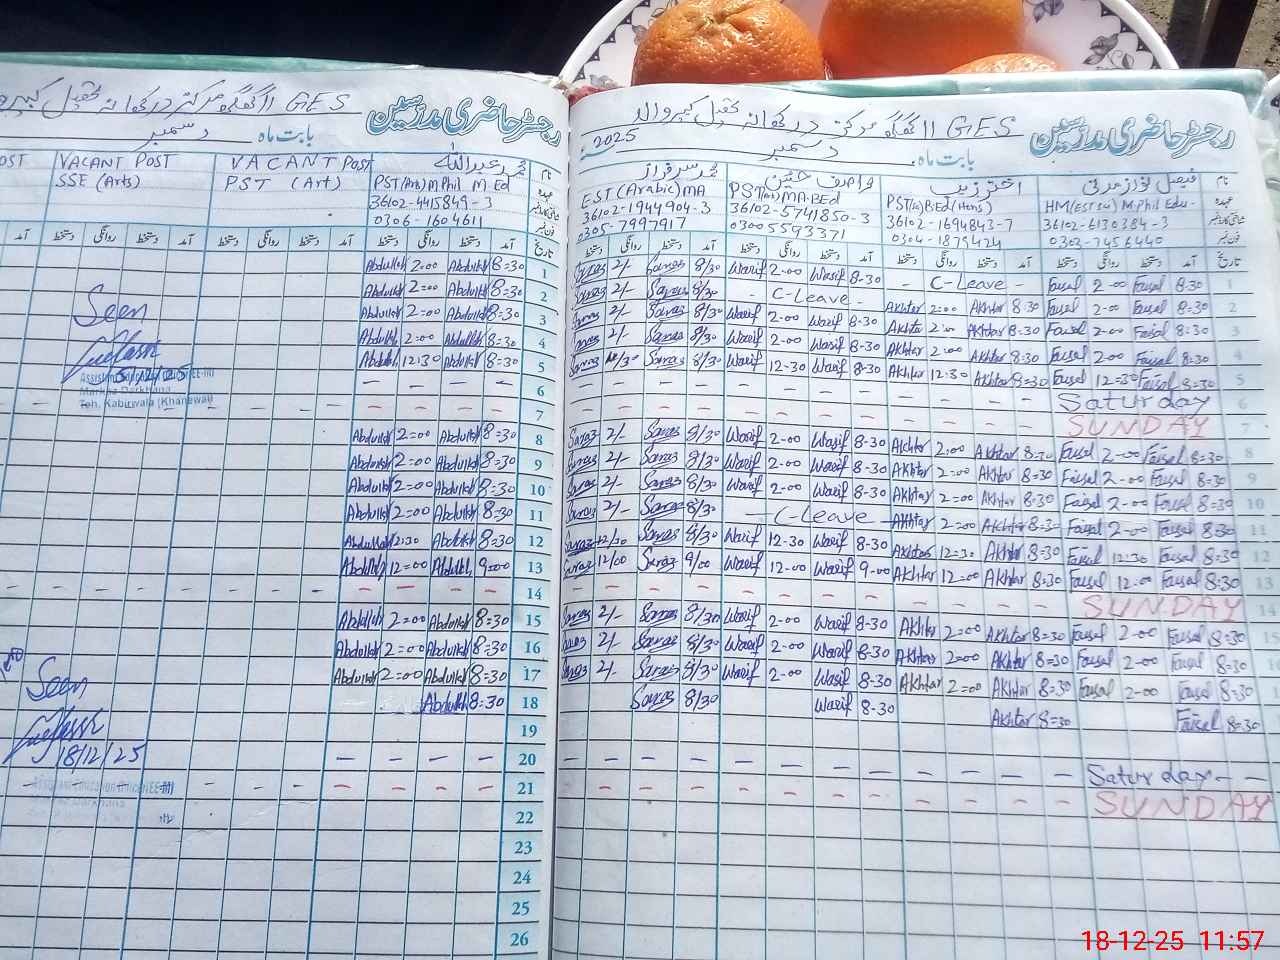 رجسٹر حاضری مدرسین
GES 11 گھگھ مرکز درکھانہ تحصیل کبیروالہ
بابت ماہ دسمبر 2025
نام
فیصل نواز مدنی
HM(EST Sci) M.Phil Edu-
36102-6130384-3
0303-7456440
اختر زیب
PST(Sc) B.Ed (Hons)
36102-1694843-7
0304-1879424
واصف حسین
PST(Art) MA.BEd
36102-5741850-3
03005593371
محمد سرفراز
EST (Arabic) MA
36102-1944904-3
0305-7997917
تاریخ آمد دستخط روانگی دستخط آمد دستخط روانگی دستخط آمد دستخط روانگی دستخط آمد دستخط روانگی دستخط
1 Sarfraz 2/- Sarfraz 8/30 Wasif 2-00 Wasif 8-30 - C-Leave - Faisal 2-00 Faisal 8:30
2 Sarfraz 2/- Sarfraz 8/30 - C-Leave - Akhtar 2:00 Akhtar 8:30 Faisal 2-00 Faisal 8:30
3 Sarfraz 2/- Sarfraz 8/30 Wasif 2-00 Wasif 8-30 Akhtar 2:00 Akhtar 8:30 Faisal 2-00 Faisal 8:30
4 Sarfraz 2/- Sarfraz 8/30 Wasif 2-00 Wasif 8-30 Akhtar 2:00 Akhtar 8:30 Faisal 2-00 Faisal 8:30
5 Sarfraz 12/30 Sarfraz 8/30 Wasif 12-30 Wasif 8-30 Akhtar 12:30 Akhtar 8:30 Faisal 12=30 Faisal 8:30
6 Saturday
7 SUNDAY
8 Sarfraz 2/- Sarfraz 8/30 Wasif 2-00 Wasif 8-30 Akhtar 2:00 Akhtar 8:30 Faisal 2-00 Faisal 8:30
9 Sarfraz 2/- Sarfraz 8/30 Wasif 2-00 Wasif 8-30 Akhtar 2:00 Akhtar 8:30 Faisal 2-00 Faisal 8:30
10 Sarfraz 2/- Sarfraz 8/30 Wasif 2-00 Wasif 8-30 Akhtar 2:00 Akhtar 8:30 Faisal 2-00 Faisal 8:30
11 Sarfraz 2/- Sarfraz 8/30 - C-Leave - Akhtar 2:00 Akhtar 8:30 Faisal 2-00 Faisal 8:30
12 Sarfraz 12/30 Sarfraz 8/30 Wasif 12-30 Wasif 8-30 Akhtar 12:30 Akhtar 8:30 Faisal 12:30 Faisal 8:30
13 Sarfraz 12/00 Sarfraz 9/00 Wasif 12-00 Wasif 9-00 Akhtar 12:00 Akhtar 8:30 Faisal 12:00 Faisal 8:30
14 SUNDAY
15 Sarfraz 2/- Sarfraz 8/30 Wasif 2-00 Wasif 8-30 Akhtar 2:00 Akhtar 8:30 Faisal 2-00 Faisal 8:30
Sarfraz 2/- Sarfraz 8/30 Wasif 2-00 Wasif 8-30 Akhtar 2:00 Akhtar 8:30 Faisal 2-00 Faisal 8:30
Sarfraz 2/- Sarfraz 8/30 Wasif 2-00 Wasif 8-30 Akhtar 2:00 Akhtar 8:30 Faisal 2-00 Faisal 8:30
Sarfraz 8/30 Wasif 8-30 Akhtar 8=30 Faisal 8=30
Saturday
SUNDAY
رجسٹر حاضری مدرسین
GES 11 گھگھ مرکز درکھانہ تحصیل کبیروالہ
بابت ماہ دسمبر
نام
محمد عبداللہ
PST (Arts) M Phil M.Ed
36102-4415849-3
0306-1604611
VACANT POST
PST (Art)
VACANT POST
SSE (Arts)
OST
تاریخ آمد دستخط روانگی دستخط آمد دستخط روانگی دستخط آمد دستخط روانگی دستخط
Abdullah 2=00 Abdullah 8=30 1
Abdullah 2=00 Abdullah 8=30 2
Abdullah 2=00 Abdullah 8=30 3
Abdullah 2=00 Abdullah 8=30 4
Abdullah 12:30 Abdullah 8=30 5
6
7
Abdullah 2=00 Abdullah 8=30 8
Abdullah 2=00 Abdullah 8=30 9
Abdullah 2=00 Abdullah 8=30 10
Abdullah 2=00 Abdullah 8=30 11
Abdullah 12:30 Abdullah 8=30 12
Abdullah 12=00 Abdullah 9=00 13
14
Abdullah 2=00 Abdullah 8=30 15
Abdullah 2=00 Abdullah 8=30 16
Abdullah 2=00 Abdullah 8=30 17
Abdullah 8=30 18
19
20
21
22
23
24
25
26
Seen
15/12/25
Markaz Darkhana
Teh. Kabirwala (Khanewal)
Seen
18/12/25
18-12-25 11:57